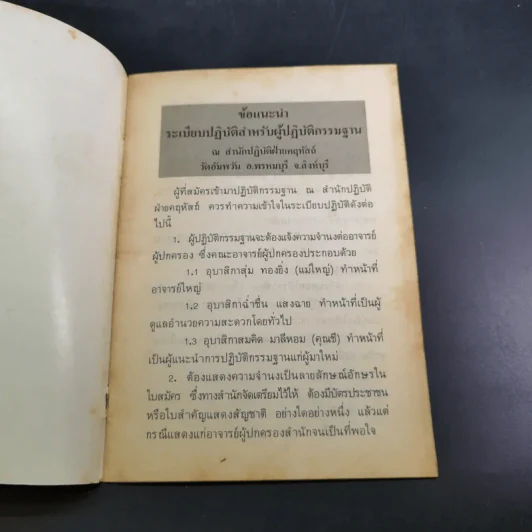 ข้อแนะนำ
ระเบียบปฏิบัติสำหรับผู้ปฏิบัติกรรมฐาน
ณ สำนักปฏิบัติฝ่ายคฤหัสถ์
วัดอัมพวัน อ.พรหมบุรี จ.สิงห์บุรี
ผู้ที่สมัครเข้ามาปฏิบัติกรรมฐาน ณ สำนักปฏิบัติ
ฝ่ายคฤหัสถ์ ควรทำความเข้าใจในระเบียบปฏิบัติดังต่อ
ไปนี้
1. ผู้ปฏิบัติกรรมฐานจะต้องแจ้งความจำนงต่ออาจารย์
ผู้ปกครอง ซึ่งคณะอาจารย์ผู้ปกครองประกอบด้วย
1.1 อุบาสิกาสุ่ม ทองยิ่ง (แม่ใหญ่) ทำหน้าที่
อาจารย์ใหญ่
1.2 อุบาสิกาฉ่ำชื่น แสงฉาย ทำหน้าที่เป็นผู้
ดูแลอำนวยความสะดวกโดยทั่วไป
1.3 อุบาสิกาสมคิด มาลีหอม (คุณชี) ทำหน้าที่
เป็นผู้แนะนำการปฏิบัติกรรมฐานแก่ผู้มาใหม่
2. ต้องแสดงความจำนงเป็นลายลักษณ์อักษรใน
ใบสมัคร ซึ่งทางสำนักจัดเตรียมไว้ให้ ต้องมีบัตรประชาชน
หรือใบสำคัญแสดงสัญชาติ อย่างใดอย่างหนึ่ง แล้วแต่
กรณีแสดงแก่อาจารย์ผู้ปกครองสำนักจนเป็นที่พอใจ